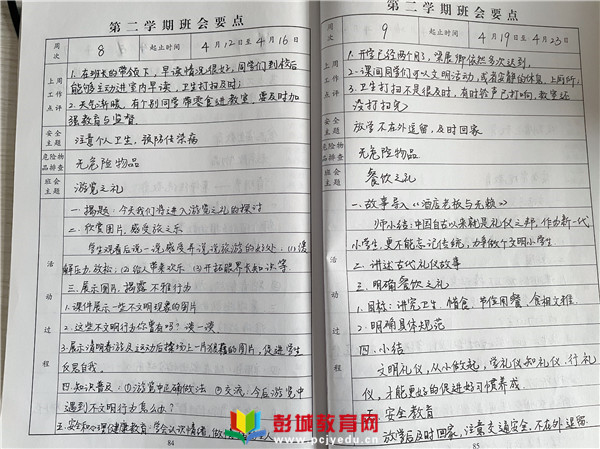 第二学期班会要点
周次 8 起止时间 4月12日至4月16日
上周工作点评
1. 在班长的带领下,早读情况很好,同学们到校后
能够主动进室内早读,卫生打扫及时;
2. 天气渐暖,有个别同学带零食进教室,要及时加
强教育与监督.
安全主题 注意个人卫生,预防传染病
危险物品排查 无危险物品
班会主题 游览之礼
活动过程
一.揭题:今天我们将进入游览之礼的探讨
二.欣赏图片,感受旅之乐
学生观看后说一说感受并说说旅游的好处:(1)缓
解压力、放松;(2)给人带来欢乐 (3)开拓眼界长知识等
三.展示图片,揭露不雅行为
1.课件展示一些不文明现象的图片
2.这些不文明行为你有吗?谈一谈.
3.展示清明春游及运动后操场上一片狼藉的图片,促进学生
反思自我.
四.知识普及:①游览中正确做法 ②交流:今后游览中
遇到不文明行为怎么办?
五.安全和心理健康教育:学会认识情绪,做
84
第二学期班会要点
周次 9 起止时间 4月19日至4月23日
上周工作点评
1.开学已经两个月了,
2.课间同学们可以文明活动,或者安静的休息,上厕所;
3.卫生打扫不是很及时,有时铃声已打响,教室还
没打扫完
安全主题 放学不在外逗留,及时回家
危险物品排查 无危险物品
班会主题 餐饮之礼
活动过程
一.故事导入《酒店老板与无赖》
师小结:中国自古以来就是礼仪之邦,作为新一代
小学生,更不能忘记传统,力争做个文明小学生.
二.讲述古代礼仪故事
三.明确餐饮之礼
1.目标:讲究卫生、惜食、节俭用餐、食相文雅.
2.明确具体规范
四.小结
文明礼仪,从小做起,学礼仪知礼仪、行礼
仪,才能更好的促进好习惯养成.
五.安全教育
放学后及时回家,注意交通安全,不在外逗留.
85
彭城教育网
www.pcjyedu.cn